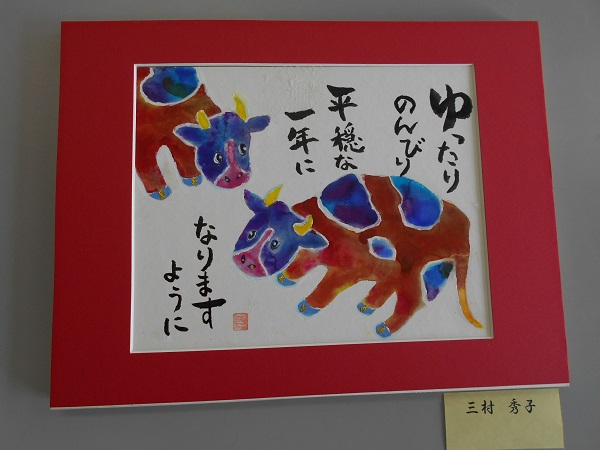 ゆったり
のんびり
平穏な
一年に
なります
ように
三村 秀子